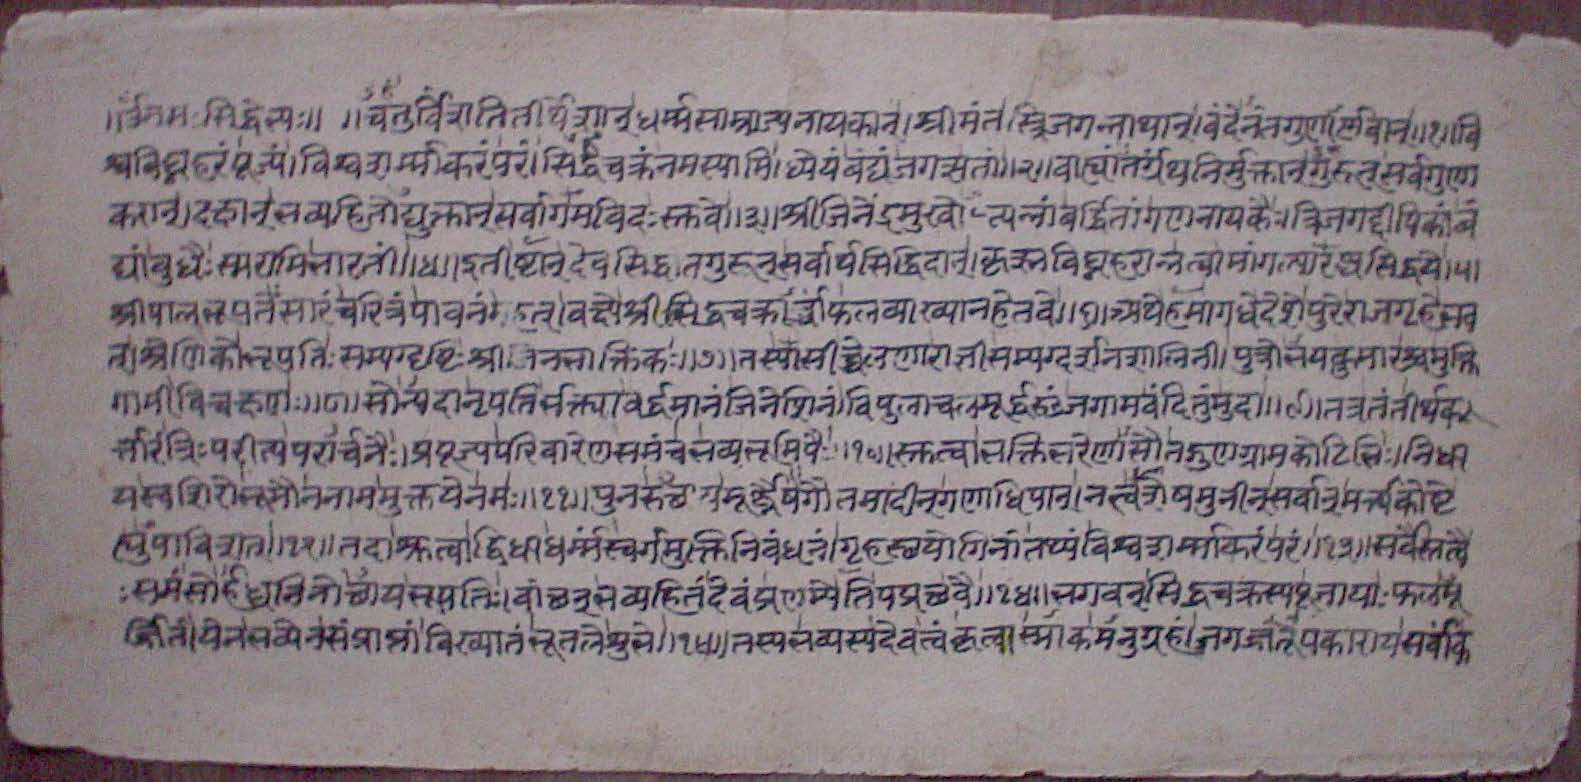 ॥ॐ नमः सिद्धेभ्यः॥ ॥चतुर्विंशतितीर्थेशान्धर्म्मसाम्राज्यनायकान्।श्रीमंतस्त्रिजगन्नाथान्।वंदेनंतगुणार्णवान्॥१॥वि
श्वविघ्नहरंपूज्यं।विश्वशर्म्माकरंपरं।सिद्धचक्रंनमस्यामि।ध्येयंवंद्यंजगत्सतां॥२॥वाह्यांतर्ग्रंथनिर्मुक्तान्गुरून्सर्वगुणा
करान्।दक्षान्भव्यहितोद्युक्तान्सर्वागमविदःस्तुवे॥३॥श्रीजिनेंद्रमुखोत्पन्नांवर्द्धितांगणनायकैः।त्रिजगद्दीपिकांवं
द्यांबुधैःस्मरामिभारतीं॥४॥इतीष्टान्देवसिद्धांतगुरून्सर्वार्थसिद्धिदान्।कृत्स्नविघ्नहरान्नत्वामांगल्यारंभसिद्धये।५।
श्रीपालनृपतेःसारंचरित्रंपावनं वक्ष्येश्रीसिद्धचक्रार्च्चाफलव्याख्यानहेतवे॥६॥अथेहमागधेदेशेपुरेराजगृहेभव
त्।श्रेणिकोनृपतिःसम्यग्दृष्टिःश्रीजिनभाक्तिकः॥७॥तस्यासीच्चेलणाराज्ञीसम्यग्दर्शनशालिनी।पुत्रोभयकुमारश्चमुक्ति
गामीविचक्षणः॥८॥सोन्यदानृपतिर्भक्त्यावर्द्धमानंजिनेशिनं।विपुलाचलमूर्द्धस्थंजगामवंदितुंमुदा॥९॥तत्रतंतीर्थक
र्त्तारंत्रिःपरीत्यपरार्चनैः।प्रपूज्यपरिवारेणसमंचभव्यभूमिपैः॥१०॥स्तुत्वाभक्तिभरेणासौतद्गुणग्रामकोटिभिः।निधा
यस्वशिरोभूमौननाममुक्तयेनमः॥११॥पुनरुच्चै मूर्द्ध्नैषगौतमादीन्गणाधिपान्।नत्वाशेषमुनीन्सर्वान्मर्त्यकोष्टे
ह्युपाविशत्॥१२॥तदाश्रुत्वाद्विधाधर्म्मंस्वर्गमुक्तिनिवंधनं।गृहस्थयोगिनांतथ्यंविश्वशर्म्माकरंपरं॥१३॥सर्वैस्तत्वै
ःसमंसोर्हद्ध्वनिनोच्छ्रायभूपतिः।वांछन्भव्यहितंदेवंप्रणम्येतिपप्रच्छवै॥१४॥भगवन्सिद्धचक्रस्यपूजायाःफलमू
र्ज्जितं।येनभव्येनसंप्राप्तंविख्यातंभूतलेशुभे॥१५॥तस्यभव्यस्यदेवत्वंकृत्वास्माकमनुग्रहं।जगज्जंतूपकारायसर्वांक